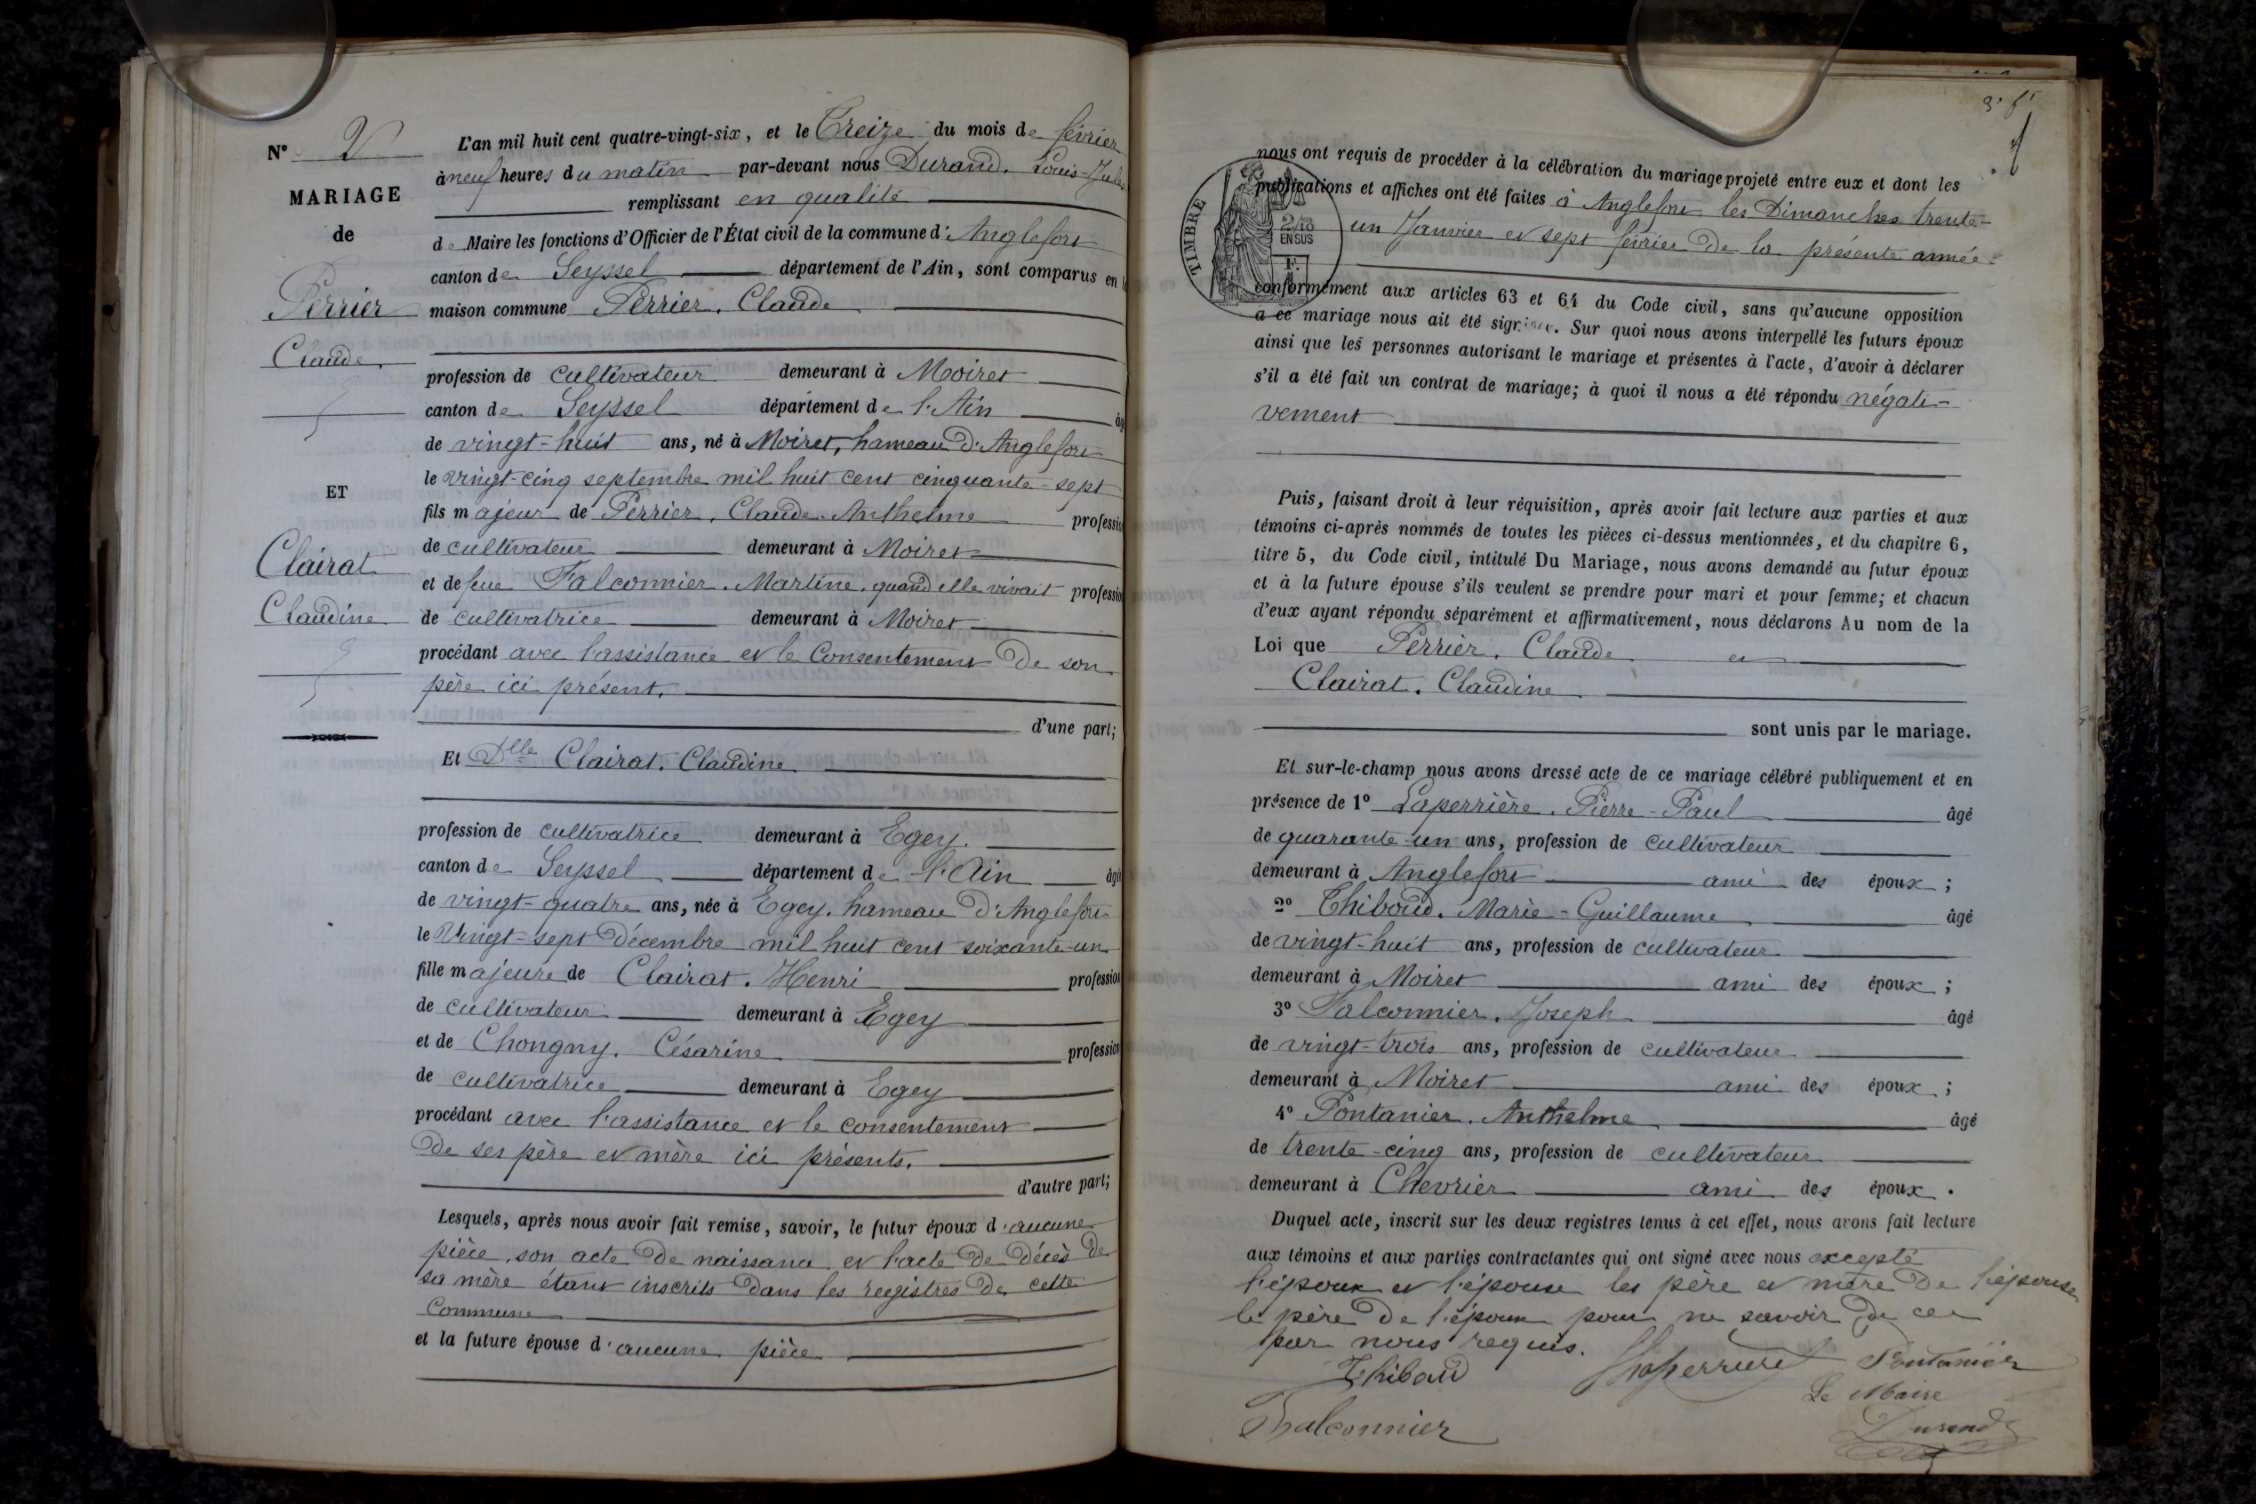 N° 2
MARIAGE
de
Perrier
Claude
ET
Clairat
Claudine
L'an mil huit cent quatre-vingt-six, et le Treize du mois de février
à neuf heures du matin par-devant nous Durand, Louis-Jules
remplissant en qualité
de Maire les fonctions d'Officier de l'État civil de la commune d'Anglefort
canton de Seyssel département de l'Ain, sont comparus en la
maison commune Perrier, Claude
profession de cultivateur demeurant à Moiret
canton de Seyssel département de l'Ain âgé
de vingt-huit ans, né à Moiret, hameau d'Anglefort
le vingt-cinq septembre mil huit cent cinquante-sept
fils majeur de Perrier, Claude-Anthelme profession
de cultivateur demeurant à Moiret
et de feue Falconnier, Martine, quand elle vivait profession
de cultivatrice demeurant à Moiret
procédant avec l'assistance et le consentement de son
père ici présent.
d'une part;
Et Dlle Clairat, Claudine
profession de cultivatrice demeurant à Egey.
canton de Seyssel département de l'Ain âgée
de vingt-quatre ans, née à Egey, hameau d'Anglefort
le Vingt-sept Décembre mil huit cent soixante-un
fille majeure de Clairat, Henri profession
de cultivateur demeurant à Egey
et de Chongny, Césarine profession
de cultivatrice demeurant à Egey
procédant avec l'assistance et le consentement
de ses père et mère ici présents.
d'autre part;
Lesquels, après nous avoir fait remise, savoir, le futur époux d'aucune
pièce, son acte de naissance et l'acte de décès de
sa mère étant inscrits dans les registres de cette
Commune
et la future épouse d'aucune pièce
TIMBRE
2/10
EN SUS
nous ont requis de procéder à la célébration du mariage projeté entre eux et dont les
publications et affiches ont été faites à Anglefort les Dimanches trente-
un Janvier et sept février de la présente année
conformément aux articles 63 et 64 du Code civil, sans qu'aucune opposition
à ce mariage nous ait été signifiée. Sur quoi nous avons interpellé les futurs époux
ainsi que les personnes autorisant le mariage et présentes à l'acte, d'avoir à déclarer
s'il a été fait un contrat de mariage; à quoi il nous a été répondu négati-
vement
Puis, faisant droit à leur réquisition, après avoir fait lecture aux parties et aux
témoins ci-après nommés de toutes les pièces ci-dessus mentionnées, et du chapitre 6,
titre 5, du Code civil, intitulé Du Mariage, nous avons demandé au futur époux
et à la future épouse s'ils veulent se prendre pour mari et pour femme; et chacun
d'eux ayant répondu séparément et affirmativement, nous déclarons Au nom de la
Loi que Perrier, Claude et
Clairat, Claudine
sont unis par le mariage.
Et sur-le-champ nous avons dressé acte de ce mariage célébré publiquement et en
présence de 1° Laperrière, Pierre-Paul âgé
de quarante-un ans, profession de cultivateur
demeurant à Anglefort ami des époux;
2° Thiboud, Marie-Guillaume âgé
de vingt-huit ans, profession de cultivateur
demeurant à Moiret ami des époux;
3° Falconnier, Joseph âgé
de vingt-trois ans, profession de cultivateur
demeurant à Moiret ami des époux;
4° Pontanier, Anthelme âgé
de trente-cinq ans, profession de cultivateur
demeurant à Chevrier ami des époux.
Duquel acte, inscrit sur les deux registres tenus à cet effet, nous avons fait lecture
aux témoins et aux parties contractantes qui ont signé avec nous excepté
l'époux et l'épouse les père et mère de l'épouse
le père de l'époux pour ne savoir de ce
par nous requis.
Thiboud Laperrière Pontanier
Le Maire
Falconnier Durand